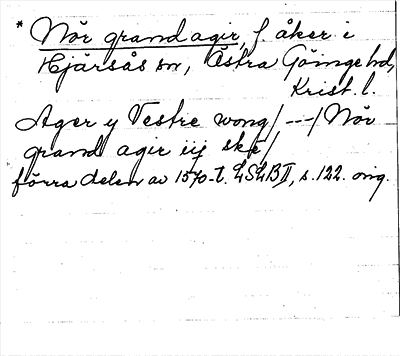 * Nör grand agir, f åker i
Hjärsås sn, Östra Göinge hd,
Krist. l.
Ager y Vestre wong/---/Nör
grand agir iij ske/
förra delen av 1570-t. LSLBII, s.122. orig.